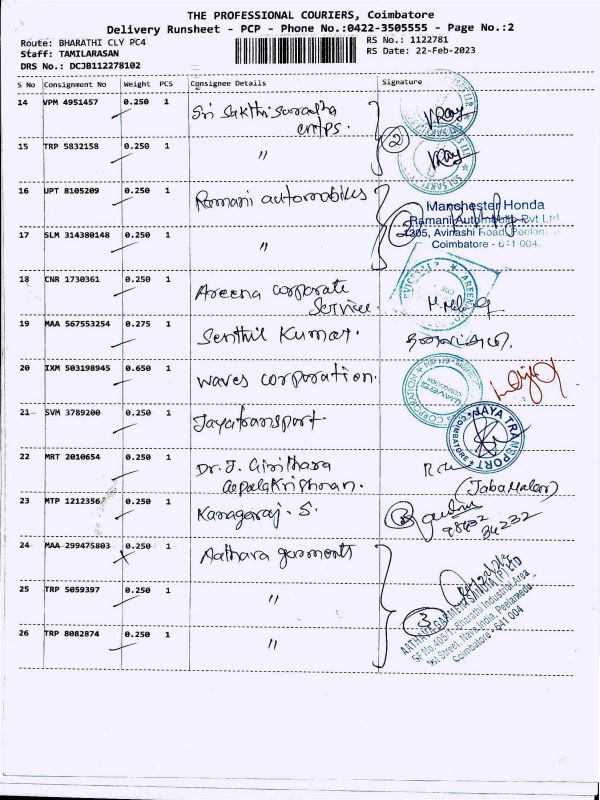 THE PROFESSIONAL COURIERS, Coimbatore
Delivery Runsheet - PCP - Phone No.:0422-3505555 - Page No.:2
Route: BHARATHI CLY PC4
RS No.: 1122781
Staff: TAMILARASAN
RS Date: 22-Feb-2023
DRS No.: DCJB112278102
S No Consignment No Weight PCS Consignee Details Signature
14 VPM 4951457 0.250 1 Sri Sakthi
15 TRP 5832158 0.250 1 "
2
16 UPT 8105209 0.250 1 Ramani automobiles
Manchester Honda
Ramani Automotive Pvt Ltd
1305, Avinashi Road, Peelamedu
Coimbatore - 641 004.
17 SLM 314380148 0.250 1 "
18 CNR 1730361 0.250 1 Areena corporate
Service.
19 MAA 567553254 0.275 1 Senthil Kumar.
20 IXM 503198945 0.650 1 waves corporation.
21 SVM 3789200 0.250 1 Jayatransport.
JAYA TRANSPORT
COIMBATORE
22 MRT 2010654 0.250 1 Dr. J. Girithara
Gopalakrishnan.
(Jabamalar)
23 MTP 1212356 0.250 1 Kanagaraj. S.
98432
34232
24 MAA 299475803 0.250 1 Aathava garments
25 TRP 5059397 0.250 1 "
3
AATHAVA GARMENTS INDIA (P) LTD
SF No 405/1, Bharathi Industrial Area
1st Street, Nava India, Peelamedu
Coimbatore - 641 004
26 TRP 8082874 0.250 1 "